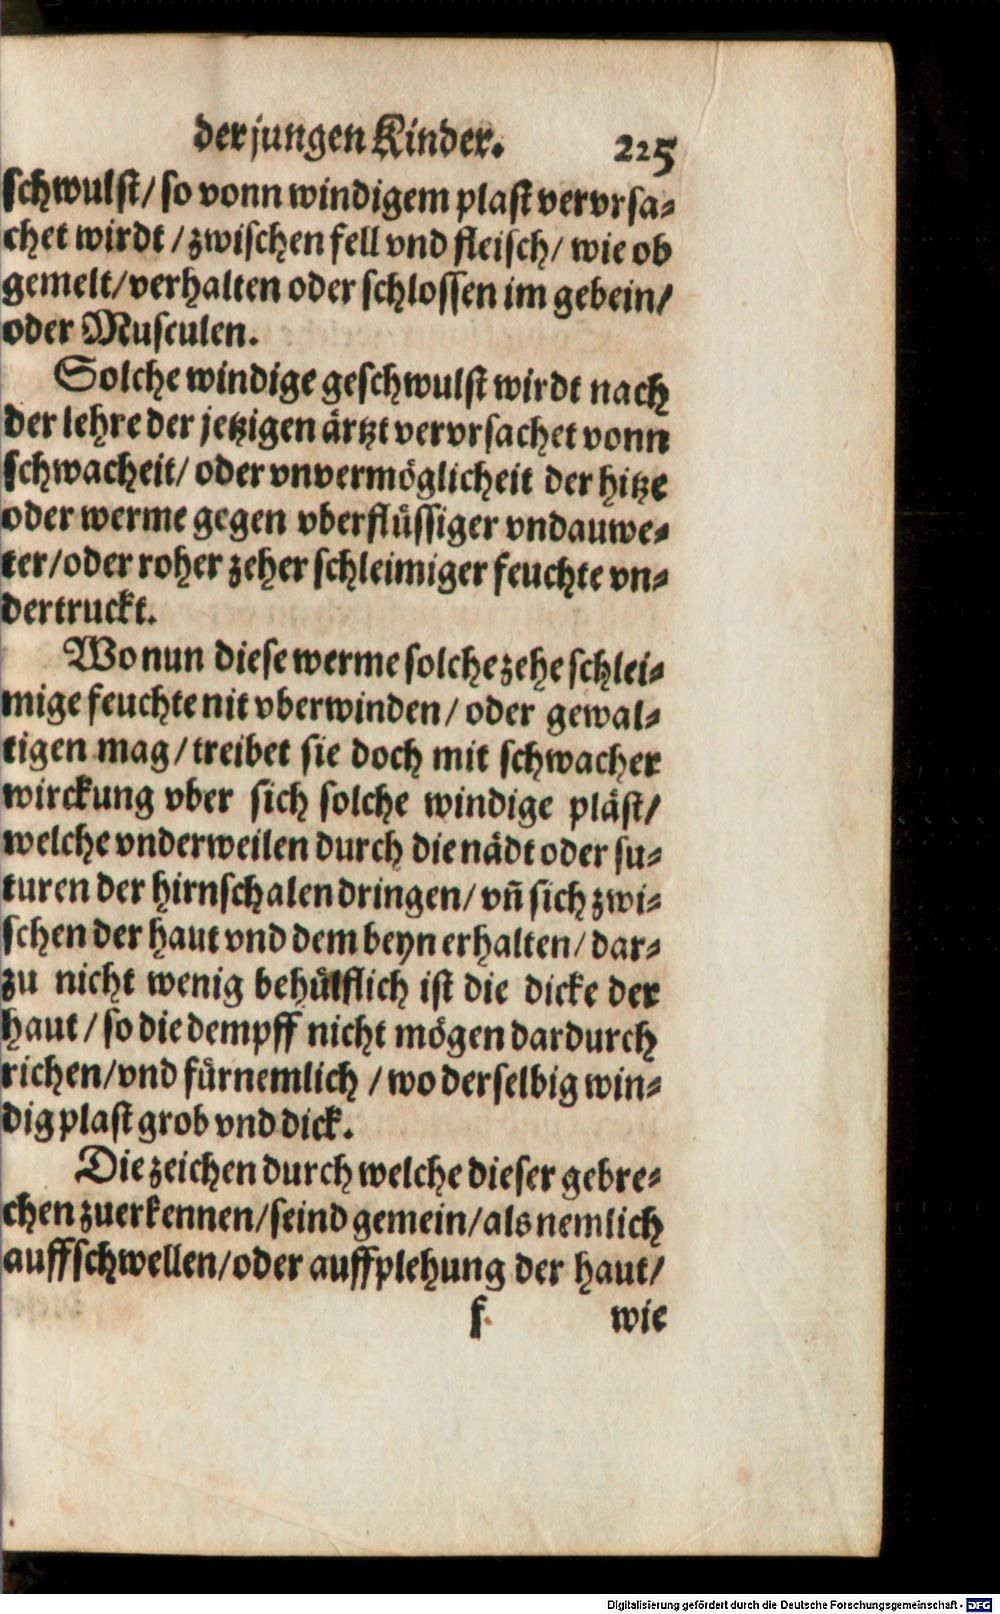 der jungen Kinder. 225
schwulst/ so vonn windigem plast vervrsa⸗
chet wirdt / zwischen fell vnd fleisch/ wie ob
gemelt/ verhalten oder schlossen im gebein/
oder Musculen.
Solche windige geschwulst wirdt nach
der lehre der jetzigen ärtzt vervrsachet vonn
schwacheit/ oder vnvermöglicheit der hitze
oder werme gegen vberflüssiger vndauwe⸗
ter/ oder roher zeher schleimiger feuchte vn⸗
dertruckt.
Wo nun diese werme solche zehe schlei⸗
mige feuchte nit vberwinden/ oder gewal⸗
tigen mag/ treibet sie doch mit schwacher
wirckung vber sich solche windige pläst/
welche vnderweilen durch die nädt oder su⸗
turen der hirnschalen dringen/ vñ sich zwi⸗
schen der haut vnd dem beyn erhalten/ dar⸗
zu nicht wenig behülflich ist die dicke der
haut / so die dempff nicht mögen dardurch
richen/ vnd fürnemlich / wo derselbig win⸗
dig plast grob vnd dick.
Die zeichen durch welche dieser gebre⸗
chen zuerkennen/ seind gemein/ als nemlich
auffschwellen/ oder auffplehung der haut/
f wie
Digitalisierung gefördert durch die Deutsche Forschungsgemeinschaft - DFG